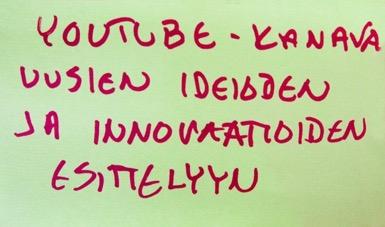 YOUTUBE-KANAVA
UUSIEN IDEIODEN
JA INNOVAATIOIDEN
ESITTELYYN